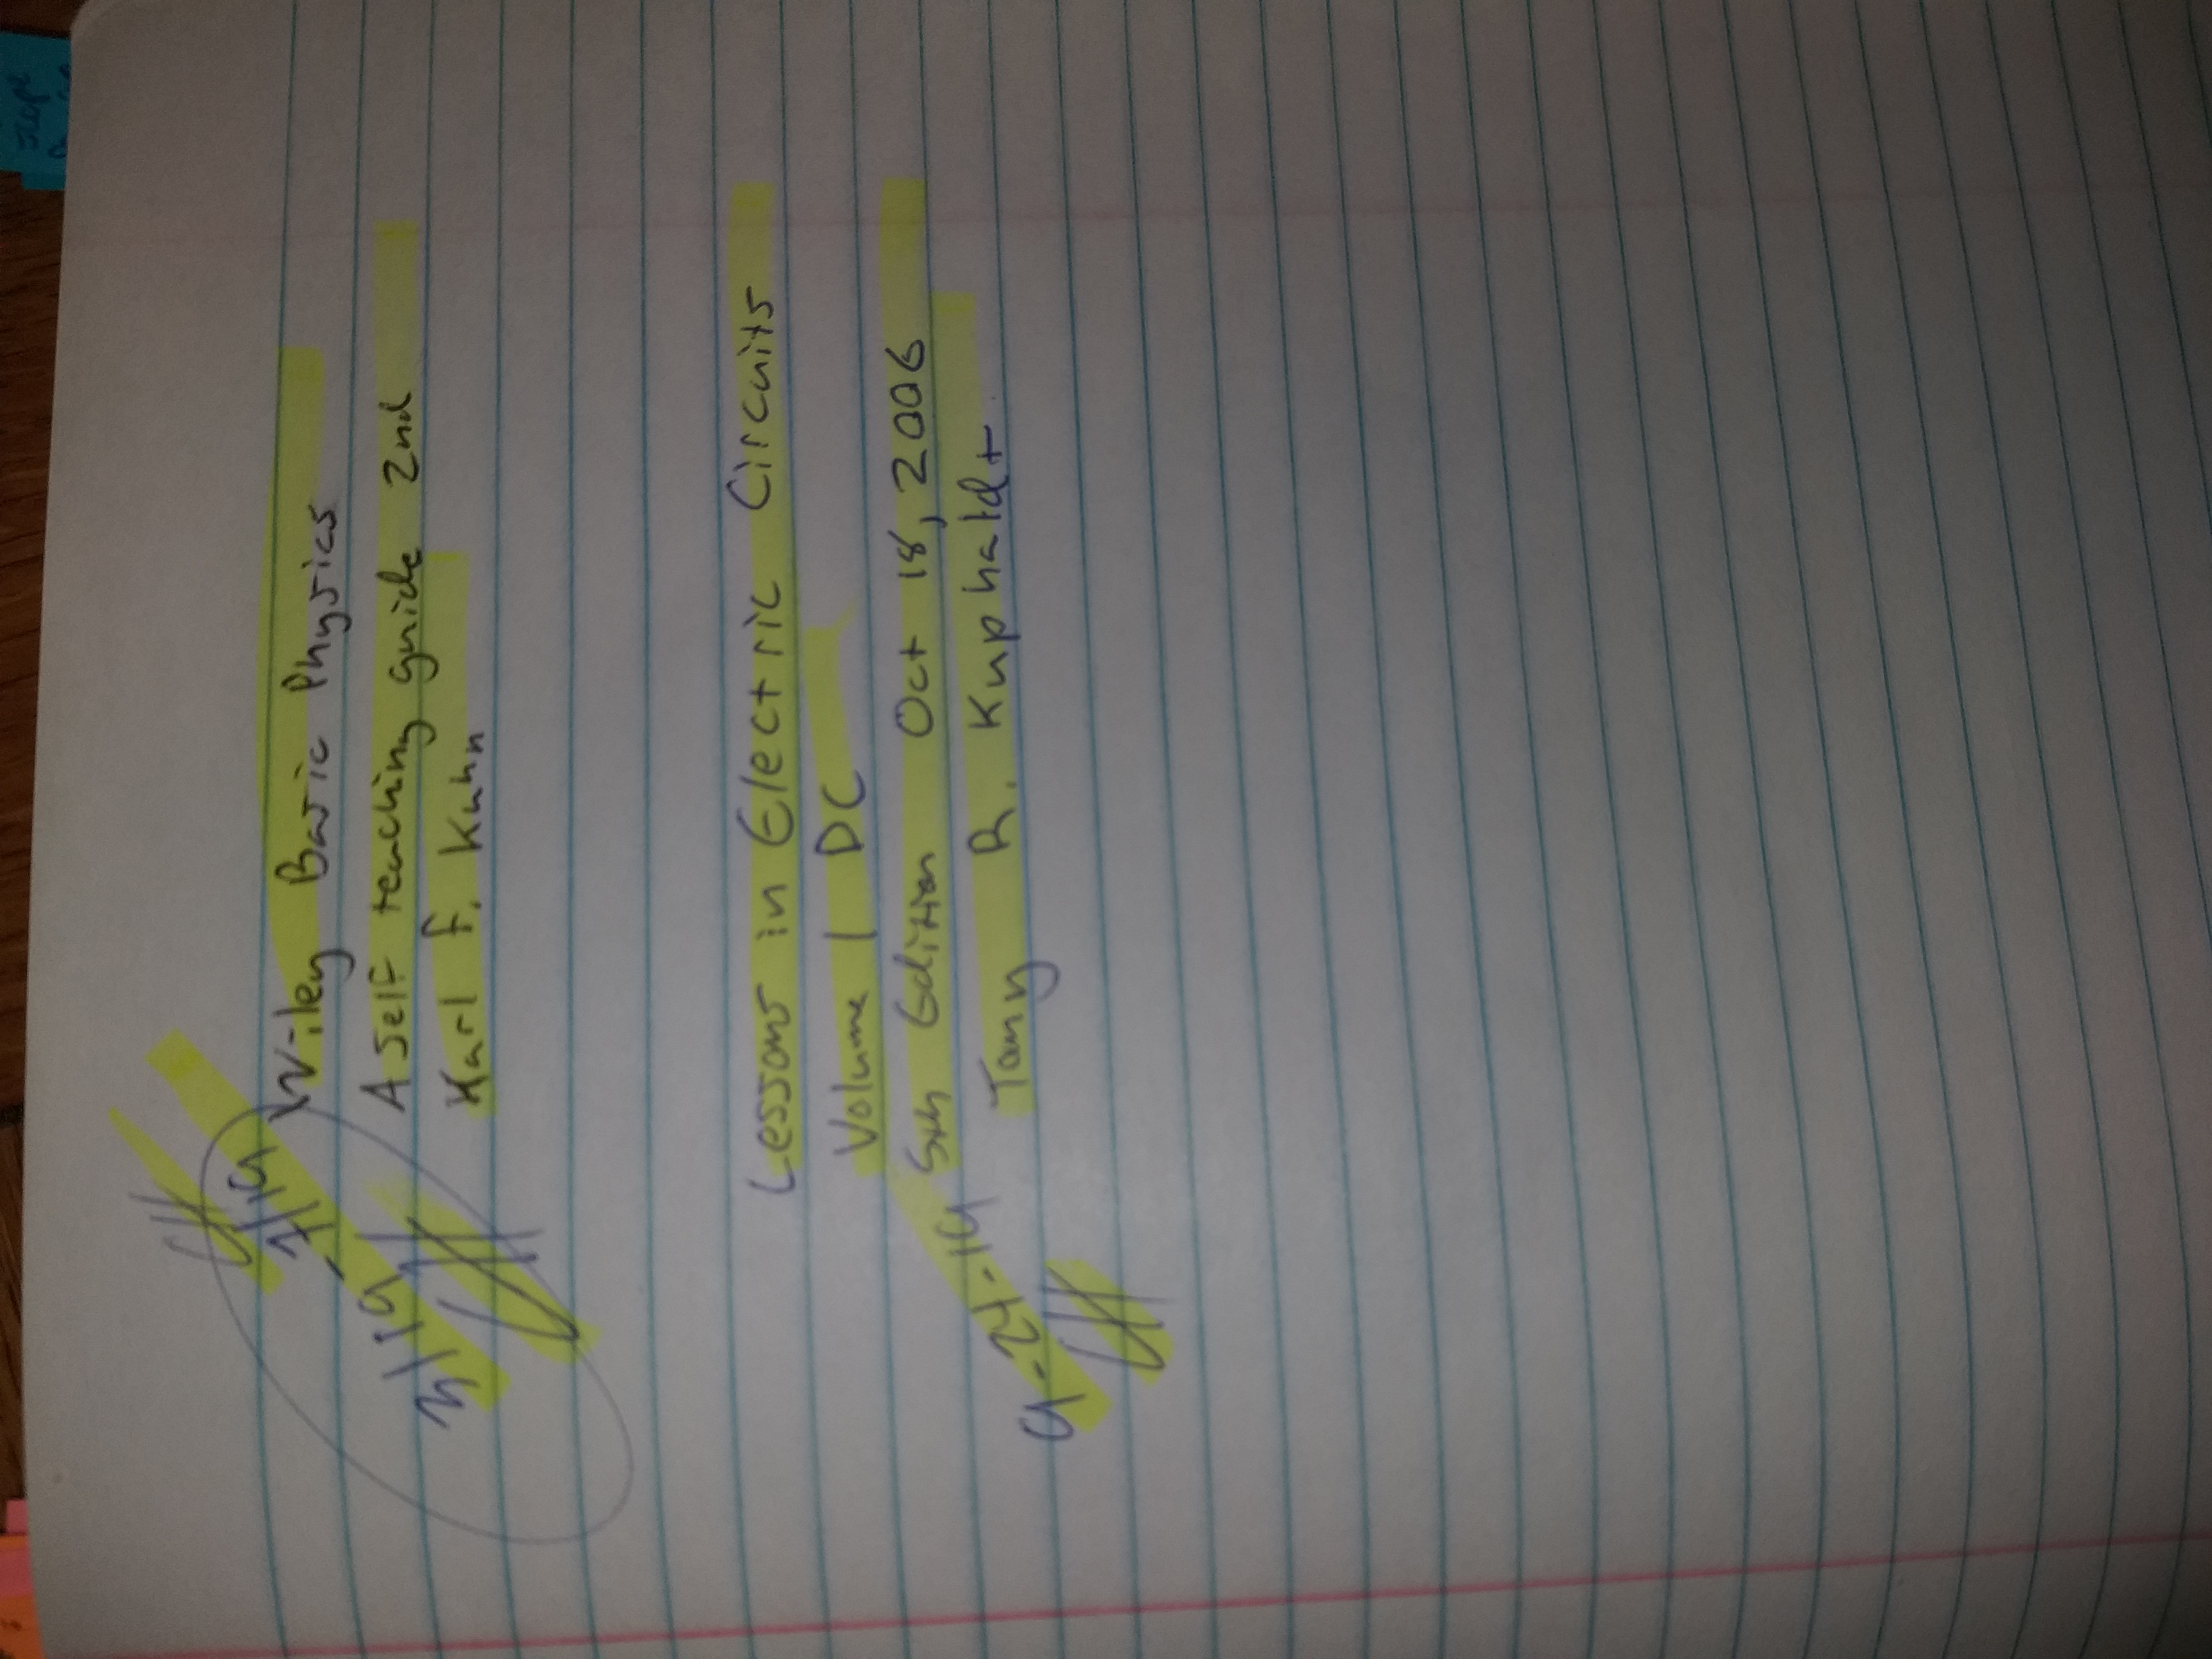 3/19 - 7/19
Wiley Basic Physics
A Self teaching guide 2nd
Karl F. Kuhn
Lessons in Electric Circuits
Volume 1 DC
9-24-19 5th Edition Oct 18, 2006
Tony R. Kuphaldt
slope